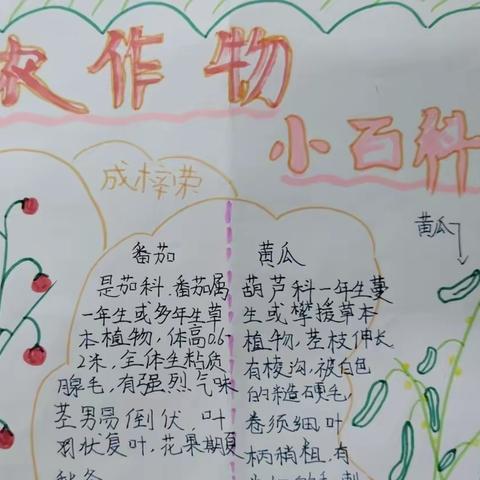 农作物
小百科
成梓荣
黄瓜
番茄
是茄科.番茄属
一年生或多年生草
本植物,体高0.6-
2米,全体生粘质
腺毛,有强烈气味
茎易倒伏,叶
羽状复叶,花果期夏
秋冬
黄瓜
葫芦科一年生蔓
生或攀援草本
植物,茎枝伸长
有棱沟,被白色
的糙硬毛,
卷须细叶
柄稍粗,有